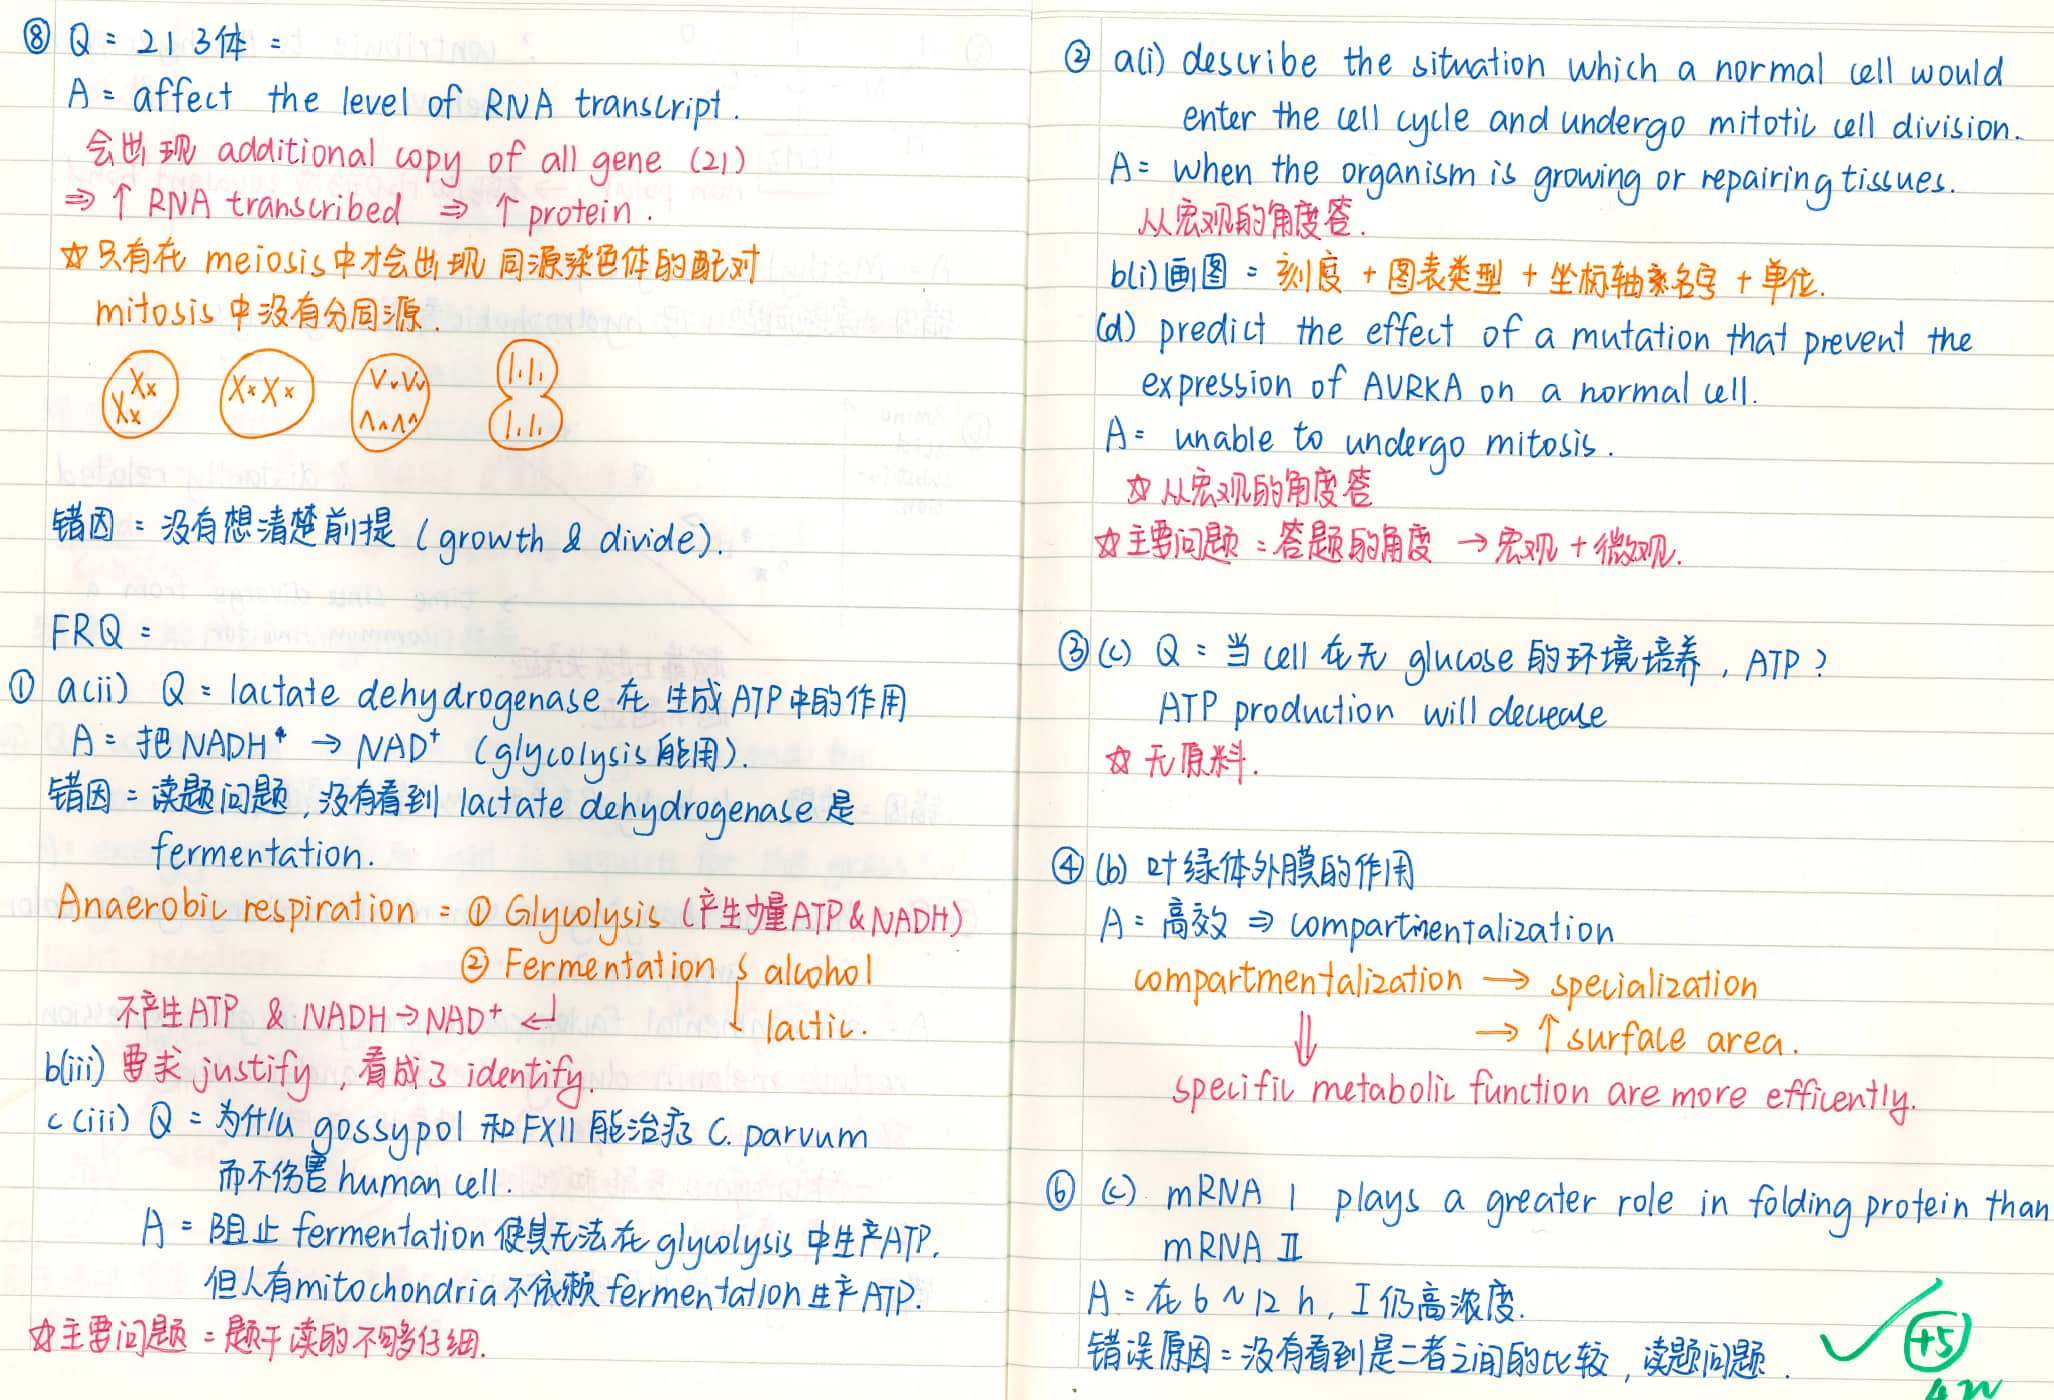 ⑧ Q = 21 3体 =
A = affect the level of RNA transcript.
会出现 additional copy of all gene (21)
⇒ ↑ RNA transcribed ⇒ ↑ protein.
☆ 只有在 meiosis中才会出现 同源染色体的配对
mitosis 中没有分同源.
错因 = 没有想清楚前提 (growth & divide).
FRQ =
① a(ii) Q = lactate dehydrogenase 在 生成ATP中的作用
A = 把NADH⁺ → NAD⁺ (glycolysis能用).
错因 = 读题问题,没有看到 lactate dehydrogenase 是
fermentation.
Anaerobic respiration = ① Glycolysis (产生少量ATP&NADH)
② Fermentation alcohol
不产生ATP & NADH→NAD⁺ ⇐ lactic.
b(iii) 要求 justify, 看成了 identify.
c(iii) Q = 为什么 gossypol 和FX11 能治疗 C. parvum
而不伤害 human cell.
A = 阻止 fermentation 使其无法在 glycolysis 中生产ATP.
但人有mitochondria不依赖 fermentation 生产ATP.
☆主要问题 = 题干读的不够仔细.
② a(i) describe the situation which a normal cell would
enter the cell cycle and undergo mitotic cell division.
A = when the organism is growing or repairing tissues.
从宏观的角度答.
b(i) 画图 = 刻度 + 图表类型 + 坐标轴名字 + 单位.
(d) predict the effect of a mutation that prevent the
expression of AURKA on a normal cell.
A = unable to undergo mitosis.
☆ 从宏观的角度答
☆主要问题 = 答题的角度 → 宏观 + 微观.
③ (c) Q = 当 cell 在无 glucose 的环境培养, ATP?
ATP production will decrease
☆ 无原料.
④ (b) 叶绿体外膜的作用
A = 高效 ⇒ compartmentalization
compartmentalization → specialization
⇓ → ↑ surface area.
specific metabolic function are more efficently.
⑥ (c) mRNA I plays a greater role in folding protein than
mRNA II
A = 在 6 ~ 12 h, I 仍高浓度.
错误原因 = 没有看到是二者之间的比较, 读题问题.
✓ +5